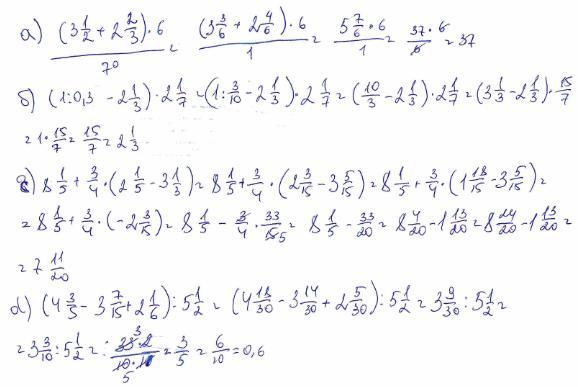 а) (3 1/2 + 2 2/3) · 6 / 7⁰ = (3 3/6 + 2 4/6) · 6 / 1 = 5 7/6 · 6 / 1 = 37 · 6 / 6 = 37
б) (1:0,3 - 2 1/3) · 2 1/7 = (1: 3/10 - 2 1/3) · 2 1/7 = (10/3 - 2 1/3) · 2 1/7 = (3 1/3 - 2 1/3) · 15/7
= 1 · 15/7 = 15/7 = 2 1/3
c) 8 1/5 + 3/4 · (2 1/5 - 3 1/3) = 8 1/5 + 3/4 · (2 3/15 - 3 5/15) = 8 1/5 + 3/4 · (1 18/15 - 3 5/15) =
= 8 1/5 + 3/4 · (-2 3/15) = 8 1/5 - 3/4 · 33/15 5 = 8 1/5 - 33/20 = 8 4/20 - 1 13/20 = 8 24/20 - 1 13/20 =
= 7 11/20
d) (4 3/5 - 3 7/15 + 2 1/6) : 5 1/2 = (4 18/30 - 3 14/30 + 2 5/30) : 5 1/2 = 3 9/30 : 5 1/2 =
= 3 3/10 : 5 1/2 = : 33 3 · 2 / 10 · 11 5 = 3/5 = 6/10 = 0,6